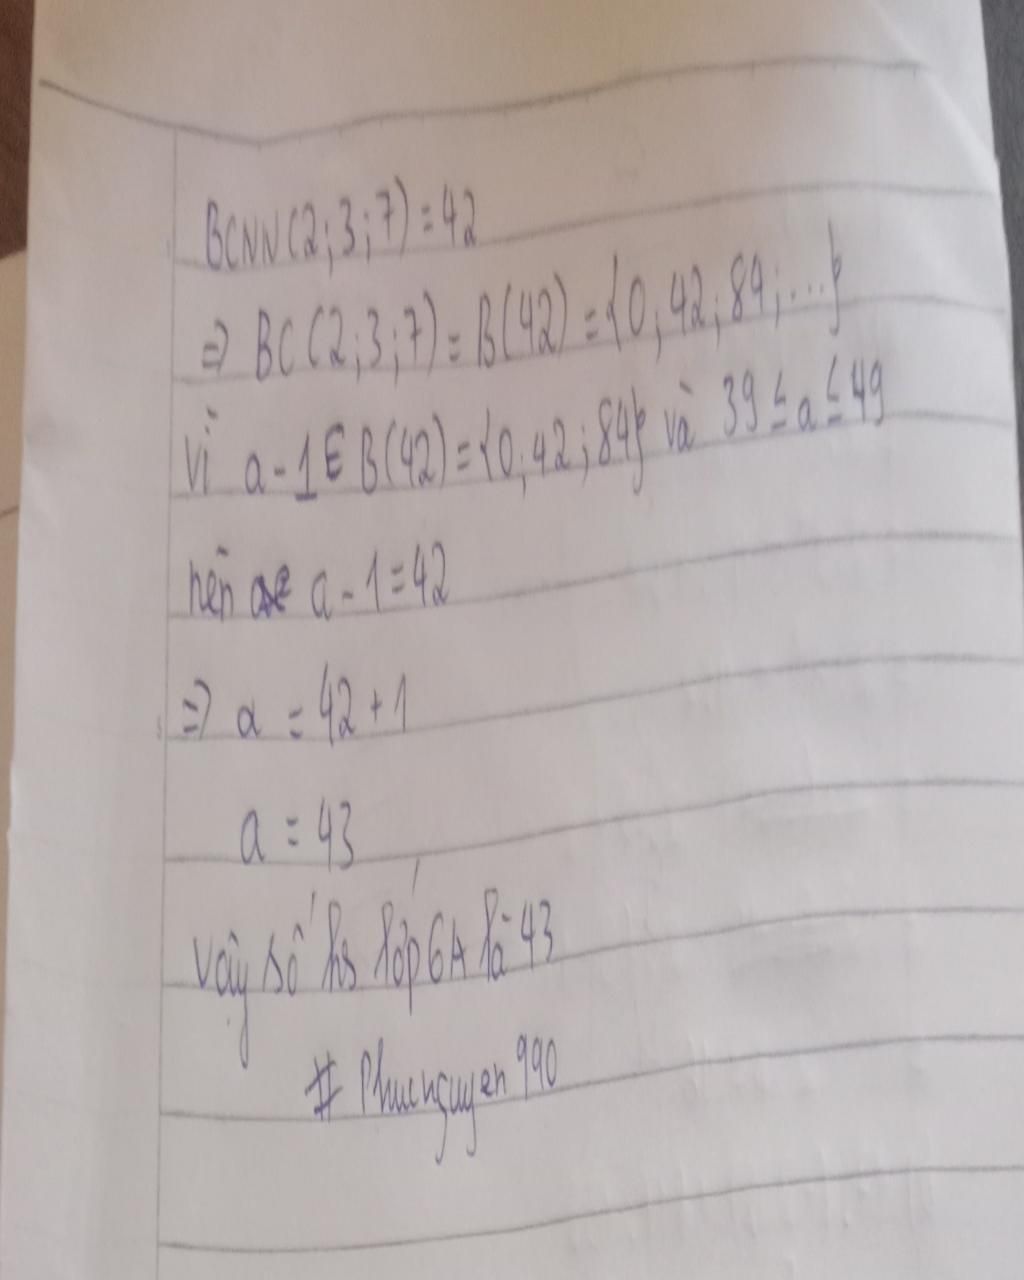 BCNN(2;3;7)=42
⇒ BC(2;3;7)=B(42)={0;42;84;...}
Vì a-1∈B(42)={0;42;84} và 39≤a≤49
nên a-1=42
⇒ a = 42+1
a = 43
Vậy số hs lớp 6A là 43
# Phucnguyen990